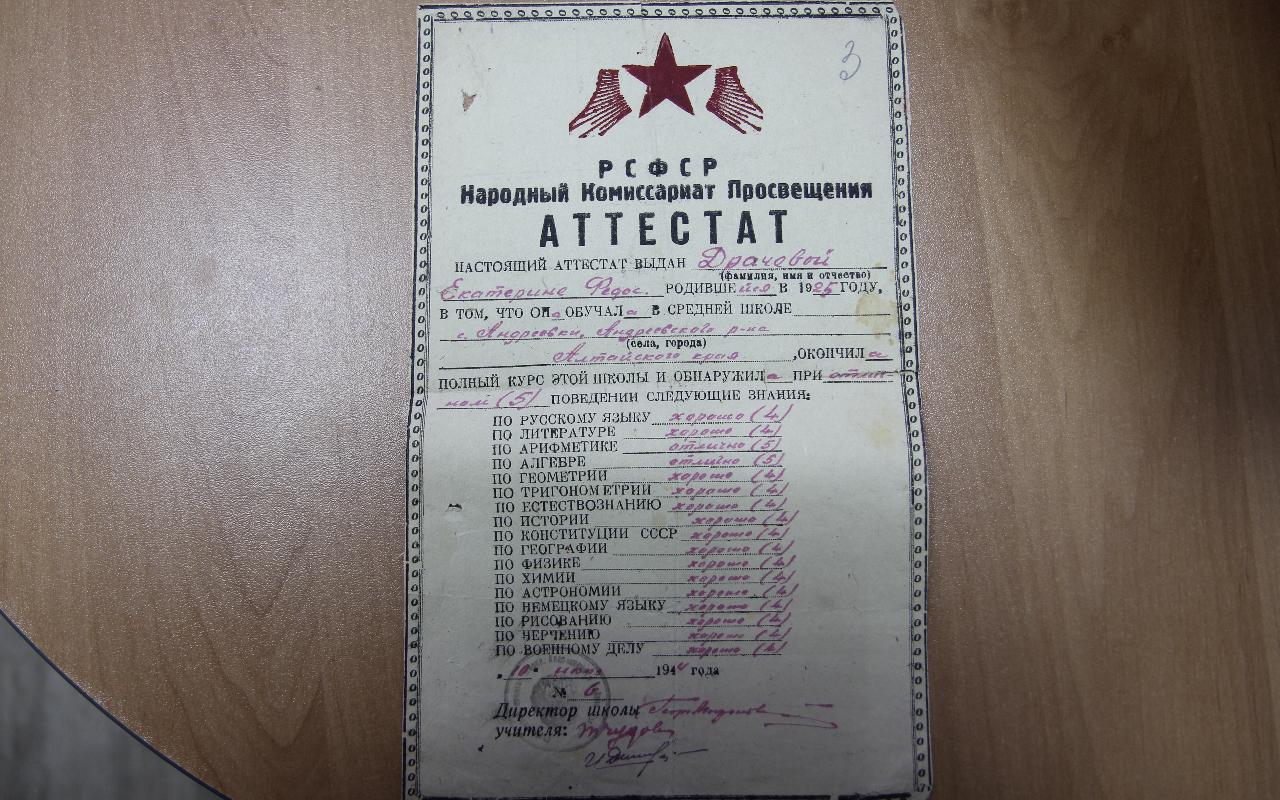 3
РСФСР
Народный Комиссариат Просвещения
АТТЕСТАТ
НАСТОЯЩИЙ АТТЕСТАТ ВЫДАН Драчевой
(фамилия, имя и отчество)
Екатерине Федос. РОДИВШЕЙСЯ В 1925 ГОДУ,
В ТОМ, ЧТО ОНа ОБУЧАЛа В СРЕДНЕЙ ШКОЛЕ
с. Андреевки, Андреевского р-на
(села, города)
Алтайского края, ОКОНЧИЛа
ПОЛНЫЙ КУРС ЭТОЙ ШКОЛЫ И ОБНАРУЖИЛа ПРИ отлич
ном (5) ПОВЕДЕНИИ СЛЕДУЮЩИЕ ЗНАНИЯ:
ПО РУССКОМУ ЯЗЫКУ хорошо (4)
ПО ЛИТЕРАТУРЕ хорошо (4)
ПО АРИФМЕТИКЕ отлично (5)
ПО АЛГЕБРЕ отлично (5)
ПО ГЕОМЕТРИИ хорошо (4)
ПО ТРИГОНОМЕТРИИ хорошо (4)
ПО ЕСТЕСТВОЗНАНИЮ хорошо (4)
ПО ИСТОРИИ хорошо (4)
ПО КОНСТИТУЦИИ СССР хорошо (4)
ПО ГЕОГРАФИИ хорошо (4)
ПО ФИЗИКЕ хорошо (4)
ПО ХИМИИ хорошо (4)
ПО АСТРОНОМИИ хорошо (4)
ПО НЕМЕЦКОМУ ЯЗЫКУ хорошо (4)
ПО РИСОВАНИЮ хорошо (4)
ПО ЧЕРЧЕНИЮ хорошо (4)
ПО ВОЕННОМУ ДЕЛУ хорошо (4)
"10" 1944 года
№ 6
Директор школы
учителя: